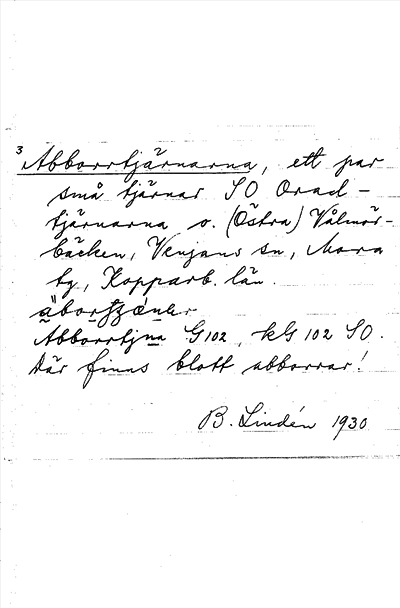 3 Abborrtjärnarna, ett par
små tjärnar SO Orad-
tjärnarna o. (Östra) Vålmör-
bäcken, Venjans sn, Mora
tg, Kopparb. län.
Abborrtjna G102, kG 102 SO.
där finns blott abborrar!
B. Lindén 1930